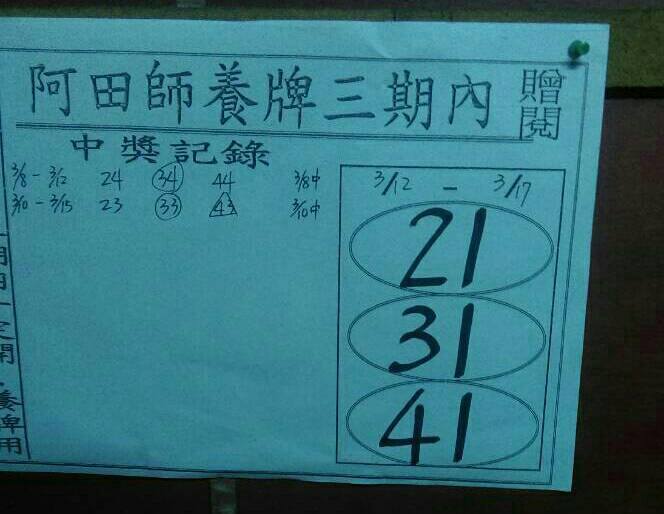 阿田師養牌三期內
贈閱
中獎記錄
3/8 - 3/12 24 34 44 3/8中
3/10 - 3/15 23 33 43 3/10中
3/12 - 3/17
21
31
41
定開
養牌用